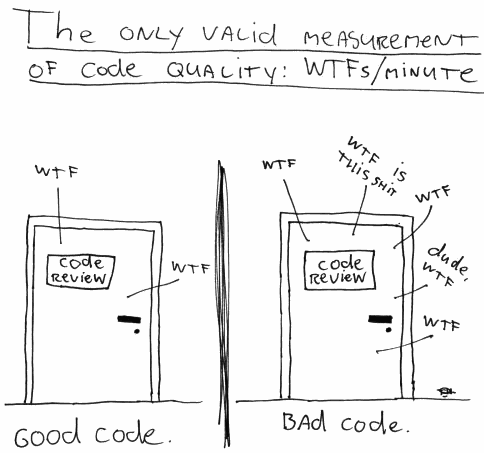 The ONLY VALID MEASUREMENT
OF Code QUALITY: WTFs/MINUTE
WTF
Code
REVIEW
WTF
GOOD code.
WTF
WTF is
THIS SHIT
WTF
Code
REVIEW
dude,
WTF
WTF
BAd code.